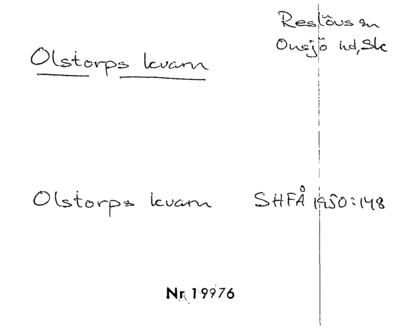 Reslövs sn
Onsjö hd, Sk
Olstorps kvarn
Olstorps kvarn SHFÅ 1950:148
Nr 19976